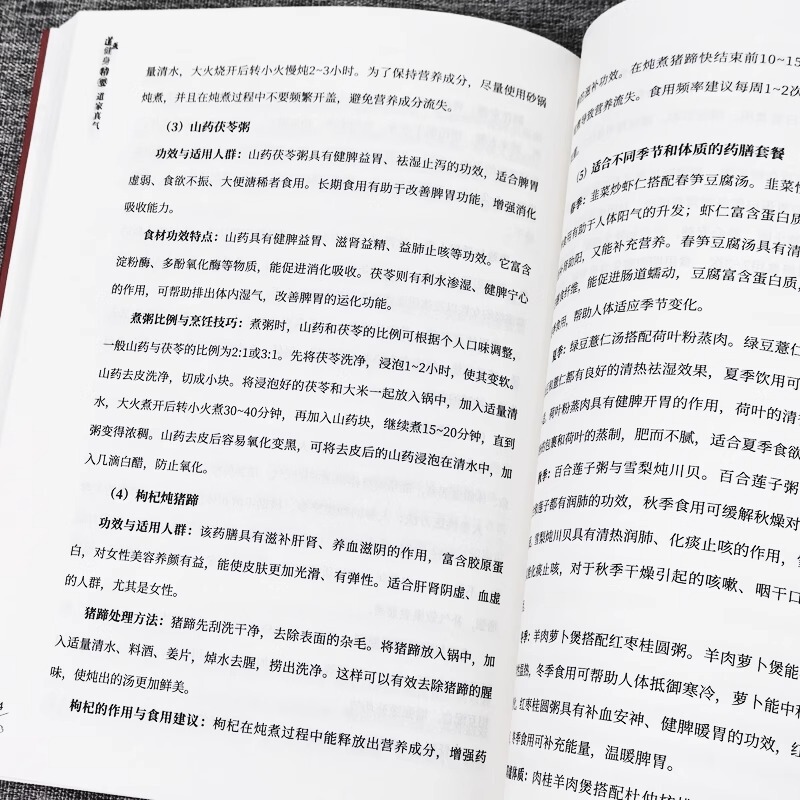 道医
健身
精要
道家真气
量清水，大火烧开后转小火慢炖2~3小时。为了保持营养成分，尽量使用砂锅
炖煮，并且在炖煮过程中不要频繁开盖，避免营养成分流失。
（3）山药茯苓粥
功效与适用人群：山药茯苓粥具有健脾益胃、祛湿止泻的功效，适合脾胃
虚弱、食欲不振、大便溏稀者食用。长期食用有助于改善脾胃功能，增强消化
吸收能力。
食材功效特点：山药具有健脾益胃、滋肾益精、益肺止咳等功效。它富含
淀粉酶、多酚氧化酶等物质，能促进消化吸收。茯苓则有利水渗湿、健脾宁心
的作用，可帮助排出体内湿气，改善脾胃的运化功能。
煮粥比例与烹饪技巧：煮粥时，山药和茯苓的比例可根据个人口味调整，
一般山药与茯苓的比例为2:1或3:1。先将茯苓洗净，浸泡1~2小时，使其变软。
山药去皮洗净，切成小块。将浸泡好的茯苓和大米一起放入锅中，加入适量清
水，大火煮开后转小火煮30~40分钟，再加入山药块，继续煮15~20分钟，直到
粥变得浓稠。山药去皮后容易氧化变黑，可将去皮后的山药浸泡在清水中，加
入几滴白醋，防止氧化。
（4）枸杞炖猪蹄
功效与适用人群：该药膳具有滋补肝肾、养血滋阴的作用，富含胶原蛋
白，对女性美容养颜有益，能使皮肤更加光滑、有弹性。适合肝肾阴虚、血虚
的人群，尤其是女性。
猪蹄处理方法：猪蹄先刮洗干净，去除表面的杂毛。将猪蹄放入锅中，加
入适量清水、料酒、姜片，焯水去腥，捞出洗净。这样可以有效去除猪蹄的腥
味，使炖出的汤更加鲜美。
枸杞的作用与食用建议：枸杞在炖煮过程中能释放出营养成分，增强药
滋补功效。在炖煮猪蹄快结束前10~15
导致营养流失。食用频率建议每周1~2次
（5）适合不同季节和体质的药膳套餐
春季：韭菜炒虾仁搭配春笋豆腐汤。韭菜性
食用有助于人体阳气的升发；虾仁富含蛋白质
助阳，又能补充营养。春笋豆腐汤具有清
膳食纤维，能促进肠道蠕动，豆腐富含蛋白质，
食用，帮助人体适应季节变化。
夏季：绿豆薏仁汤搭配荷叶粉蒸肉。绿豆薏仁
薏仁都有良好的清热祛湿效果，夏季饮用可
荷叶粉蒸肉具有健脾开胃的作用，荷叶的清
包裹和荷叶的蒸制，肥而不腻，适合夏季食欲
秋季：百合莲子粥与雪梨炖川贝。百合莲子粥
莲子都有润肺的功效，秋季食用可缓解秋燥对
雪梨炖川贝具有清热润肺、化痰止咳的作用，雪
化痰止咳，对于秋季干燥引起的咳嗽、咽干口
冬季：羊肉萝卜煲搭配红枣桂圆粥。羊肉萝卜煲能
温热，冬季食用可帮助人体抵御寒冷，萝卜能中和
红枣桂圆粥具有补血安神、健脾暖胃的功效，红
冬季食用可补充能量，温暖脾胃。
体质：肉桂羊肉煲搭配杜仲核桃